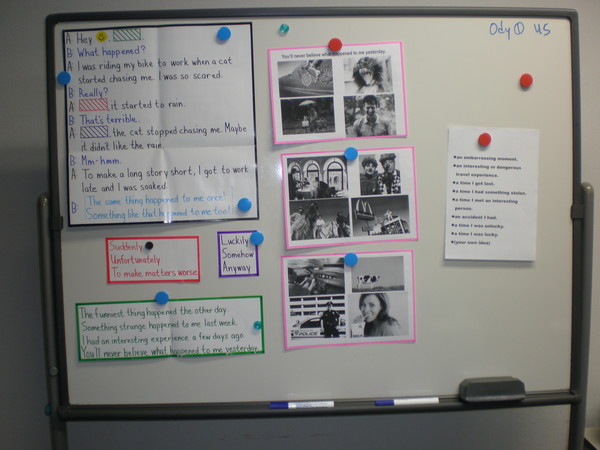 A: Hey
B: What happened?
A: I was riding my bike to work when a cat
started chasing me. I was so scared.
B: Really?
A: it started to rain.
B: That's terrible.
A: the cat stopped chasing me. Maybe
it didn't like the rain.
B: Mm-hmm.
A: To make a long story short, I got to work
late and I was soaked.
B: The same thing happened to me once!
Something like that happened to me too!
Suddenly
Unfortunately
To make matters worse
Luckily
Somehow
Anyway
The funniest thing happened the other day.
Something strange happened to me last week.
I had an interesting experience a few days ago.
You'll never believe what happened to me yesterday.
You'll never believe what happened to me yesterday.
POLICE
Ody① US
•an embarrassing moment.
•an interesting or dangerous
travel experience.
•a time I got lost.
•a time I had something stolen.
•a time I met an interesting
person.
•an accident I had.
•a time I was unlucky.
•a time I was lucky.
•(your own idea)